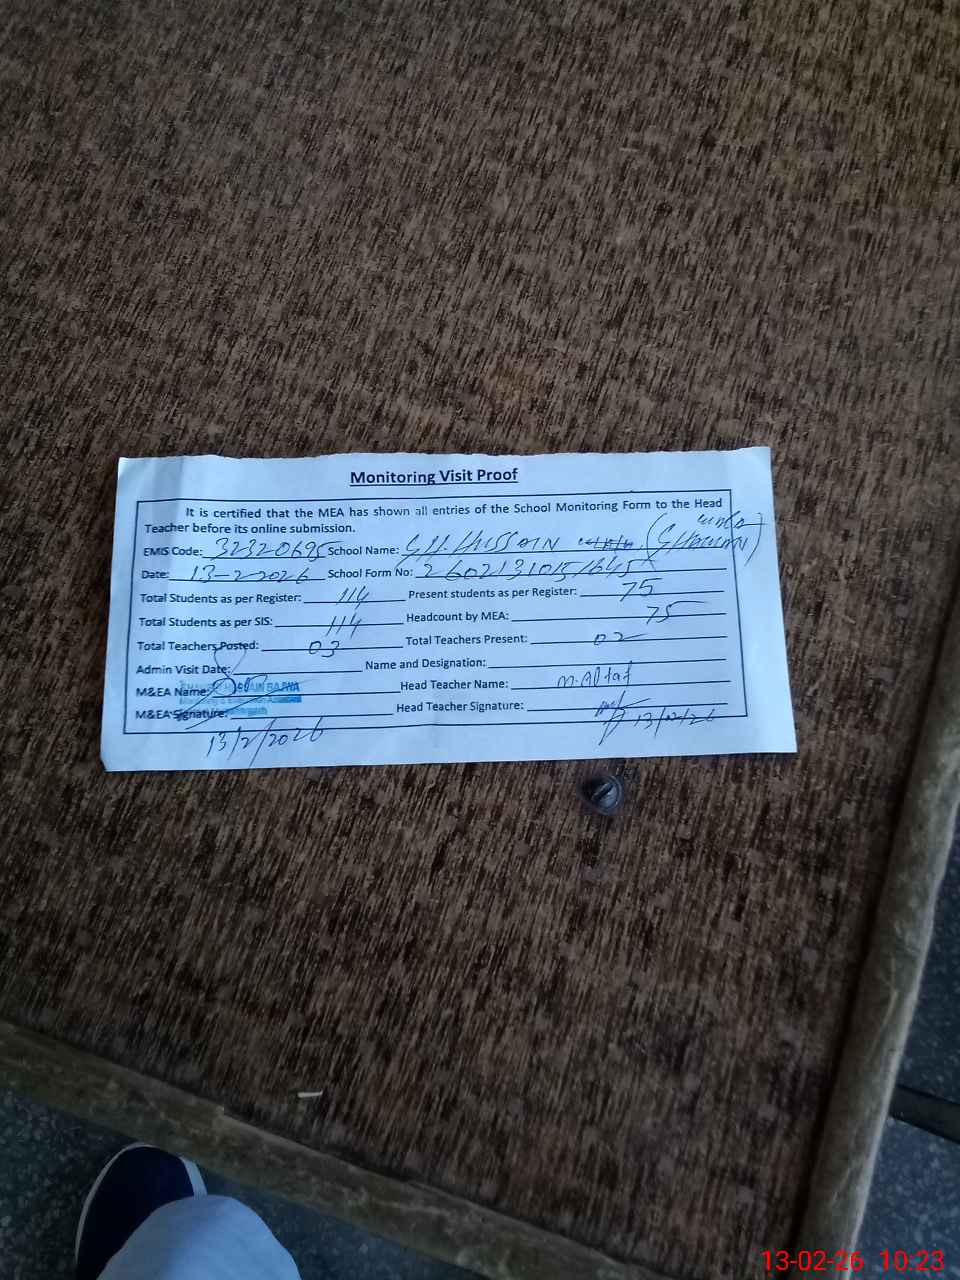 Monitoring Visit Proof
It is certified that the MEA has shown all entries of the School Monitoring Form to the Head
Teacher before its online submission.
EMIS Code: 32320695 School Name: HUSSAIN
Date: 13-2-2026 School Form No:
Total Students as per Register: 114 Present students as per Register: 75
Total Students as per SIS: 114 Headcount by MEA: 75
Total Teachers Posted: 03 Total Teachers Present: 02
Admin Visit Date: Name and Designation:
M&EA Name: HUSSAIN BAJWA Head Teacher Name: M. Altaf
M&EA Signature: Head Teacher Signature:
13/2/2026 13/02/26
13-02-26 10:23